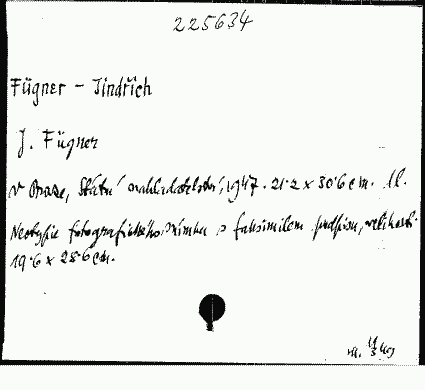 225634
Fügner - Jindřich
J. Fügner
v Praze, Státní nakladatelství, 1947. 21·2 x 30·6 cm. Il.
Neotypie fotografického snímku s faksimilem podpisu, velikost:
19·6 x 25·6 cm.